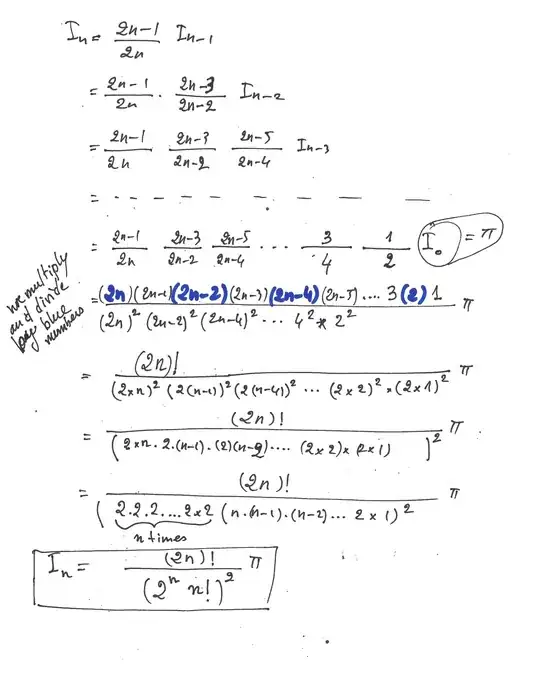 I_n = \frac{2n-1}{2n} I_{n-1}
= \frac{2n-1}{2n} \cdot \frac{2n-3}{2n-2} I_{n-2}
= \frac{2n-1}{2n} \frac{2n-3}{2n-2} \frac{2n-5}{2n-4} I_{n-3}
= - - - - - - - - -
= \frac{2n-1}{2n} \frac{2n-3}{2n-2} \frac{2n-5}{2n-4} \cdots \frac{3}{4} \frac{1}{2} I_0 = π
we multiply
and divide
by blue
numbers
= \frac{(2n)(2n-1)(2n-2)(2n-3)(2n-4)(2n-5) \cdots 3(2)1}{(2n)^2 (2n-2)^2 (2n-4)^2 \cdots 4^2 * 2^2} π
= \frac{(2n)!}{(2×n)^2 (2(n-1))^2 (2(n-4))^2 \cdots (2×2)^2 × (2×1)^2} π
= \frac{(2n)!}{(2×n \cdot 2 \cdot (n-1) \cdot (2)(n-2) \cdots (2×2) × (2×1))^2} π
= \frac{(2n)!}{(2.2.2....2×2 (n \cdot (n-1) \cdot (n-2) ... 2×1)^2} π
n times
I_n = \frac{(2n)!}{(2^n n!)^2} π